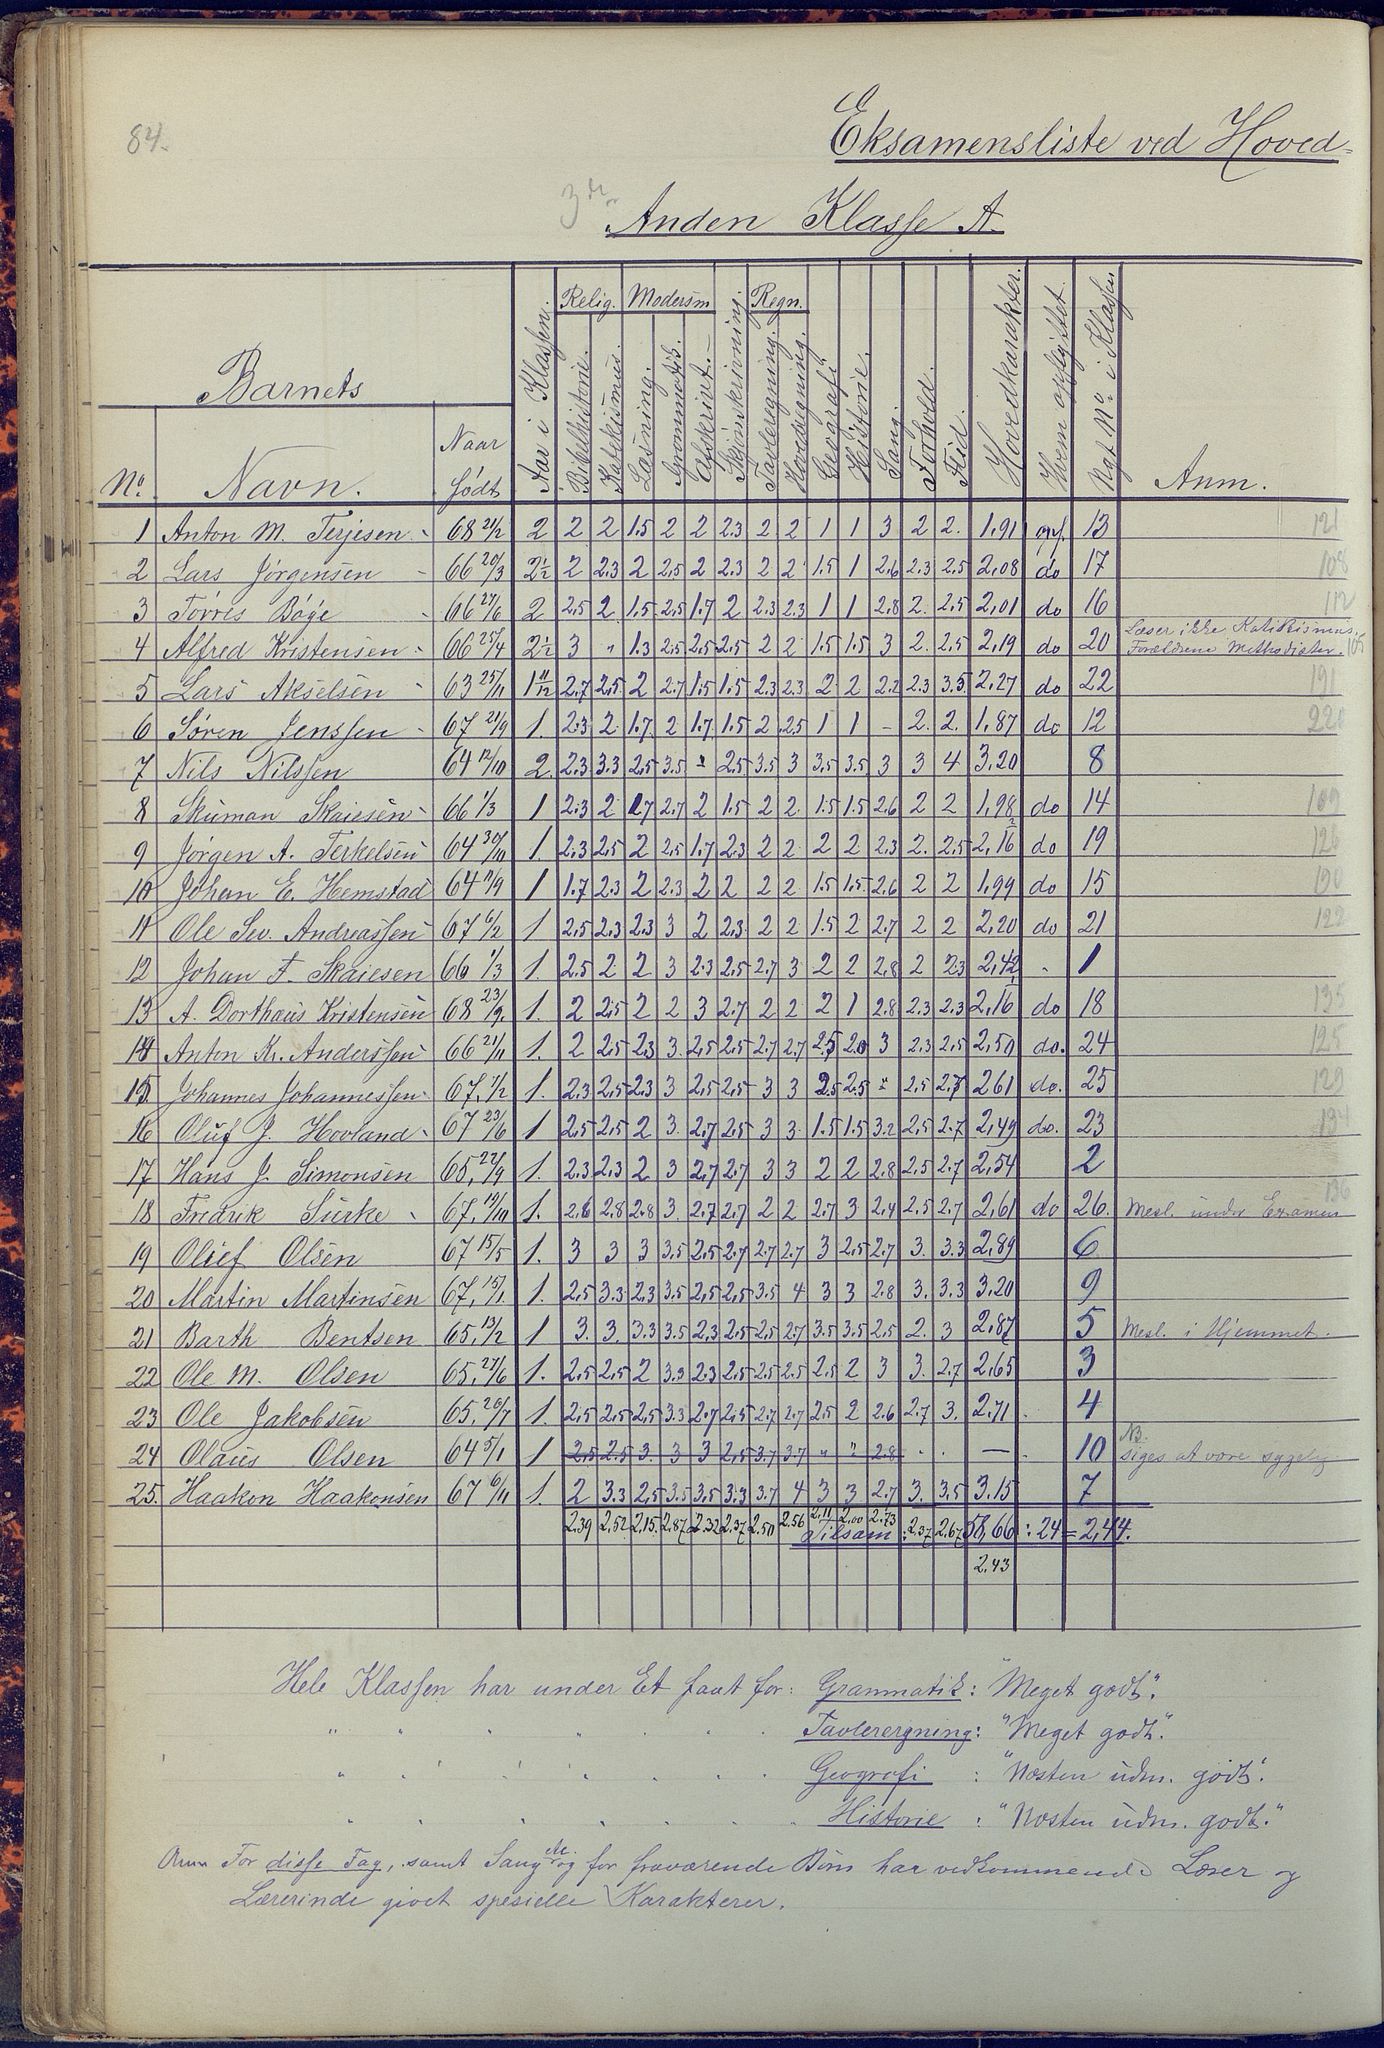 84.
Eksamensliste ved Hoved-
3die
Anden Klasse A.
Barnets
No. Navn. Naar født Aar i Klassen. Relig. Bibelhistorie. Katekismus. Modersm. Læsning. Grammatik. Afskrivt. Skjönskrivning. Regn. Tavleregning. Hovedregning. Geografi Historie. Sang. Forhold. Flid. Hovedkarakter. Hvem opflyttet. Nyt No. i Klassen Anm.
1 Anton M. Terjesen 68 21/2 2 2 2 1.5 2 2 2.3 2 2 1 1 3 2 2. 1,91 opf. 13 121
2 Lars Jørgensen 66 20/3 2½ 2 2.3 2 2,5 2 2.3 2 2 1.5 1 2.6 2.3 2.5 2,08 do 17 108
3 Torres Bøge 66 27/6 2 2,5 2 1.5 2,5 1.7 2 2.3 2.3 1 1 2.8 2. 2,5 2,01 do 16 112
4 Alfred Kristensen 66 25/4 2½ 3 " 1.3 2,5 2,5 2,5 2 2 1.5 1.5 3 2. 2,5 2,19 do 20 Læser ikke Katikismus. Forældrene Methodister. 105
5 Lars Akselsen 63 25/11 1 11/12 2,7 2,5 2 2.7 1.5 1.5 2.3 2.3 2 2 2.2 2.3 3.5 2,27 do 22 191
6 Søren Jenssen 67 21/9 1. 2.3 2 1.7 2 1.7 1.5 2 2.5 1 1 - 2. 2. 1,87 do 12 220
7 Nils Nilssen 64 12/10 2. 2.3 3.3 2,5 3.5 " 2.5 3.5 3 3.5 3.5 3 3 4 3,20 8
8 Skuman Skaiesen 66 1/3 1 2.3 2 1.7 2.7 2 1.5 2 2. 1.5 1.5 2.6 2 2 1,98 do 14 109
9 Jørgen A. Terkelsen 64 30/10 1. 2.3 2,5 2 2,5 1.7 2.3 2 2. 2 2. 2.3 2. 2.5 2,16 do 19 126
10 Johan E. Hemstad 64 11/9 1 1.7 2.3 2 2.3 2 2 2 2. 1.5 1.5 2.6 2 2 1,99 do 15 190
11 Ole Sev. Andreassen 67 6/2 1. 2,5 2.3 2.3 3 2 2.3 2 2 1.5 2 2.7 2 2 2,20 do 21 122
12 Johan F. Skaiesen 66 1/3 1. 2.5 2 2 3 2.3 2,5 2.7 3 2 2 2,8 2 2.3 2,42 1
13 A. Dorthæus Kristensen 68 23/9. 1. 2 2,5 2 2 3 2.7 2 2 2 1 2.8 2.3 2.3 2,16 do 18 135
14 Anton Kr. Anderssen 66 21/11 1. 2 2,5 2.3 3. 2,5 2.5 2.7 2.7 2.5 2.0 3 2.3 2,5 2,50 do. 24 125
15 Johannes Johannessen 67, 1/2 1. 2.3 2,5 2.3 3 2,5 2,5 3 3 2.5 2.5 " 2,5 2.7 2 61 do. 25 129
16 Oluf J. Hovland 67 23/6 1 2,5 2,5 2 3. 2,7 2,5 3 3. 1.5 1.5 3.2 2,5 2.7 2,49 do. 23 134
17 Hans J. Simonsen 65, 22/9 1. 2.3 2,3 2 3 2,7 2.7 3 3 2 2 2.8 2,5 2.7 2,54 2
18 Fredrik Surke 67, 19/10 1. 2.6 2.8 2.8 3. 2.7 2,7 2 2 2.7 3 2,4 2.5 2,7 2,61 do 26. Mesl. under Examen 136
19 Olief Olsen 67 15/5 1. 3 3 3 3,5 2,5 2.7 2.7 2.7 3 2,5 2.7 3. 3.3 2,89 6
20 Martin Martinsen 67, 15/1 1. 2.5 3.3 2,3 3.5 2,5 2,5 3.5 4 3 3 2.8 3. 3.3 3,20 9
21 Barth Bentsen 65, 13/2 1 3. 3. 3.3 3.5 2,3 2,5 2,5 2.7 3.5 3.5 2.5 2. 3 2,87 5 Mesl. i Hjemmet.
22 Ole M. Olsen 65, 27/6 1. 2,5 2,5 2 3.3 2.3 2,5 2.5 2.5 2,5 2 3 3. 2.7 2,65 3
23 Ole Jakobsen 65, 26/7 1. 2,5 2,5 2,5 3.3 2.7 2,5 2.7 2.7 2,5 2 2.6 2.7 3. 2.71 4
24 Olaus Olsen 64 5/1 1 2,5 2.5 3. 3 3 2,5 3.7 3.7 " " 2.8 . . — 10 NB. siges at være sygelig
25. Haakon Haakonsen 67 6/11 1. 2 3.3 2,5 3.5 3,5 3.3 3.7 4 3 3 2.7 3. 3,5 3.15 7
2.39 2,52 2,15 2.87 2.32 2.37 2.50 2.56 2,11 2,00 2.73 Tilsam: 2.37 2.67 58,66 : 24 = 2,44.
2,43
Hele Klassen har under Et faat for: Grammatik: "Meget godt".
" " " " " " Tavleregning: "Meget godt".
" " " " " " Geografi : "Næsten udm. godt".
" " " " " " Historie : "Næsten udm. godt."
Anm For disse Fag, samt Sang og for fraværende Børn har vedkommende Lærer og
Lærerinde givet spesielle Karakterer.